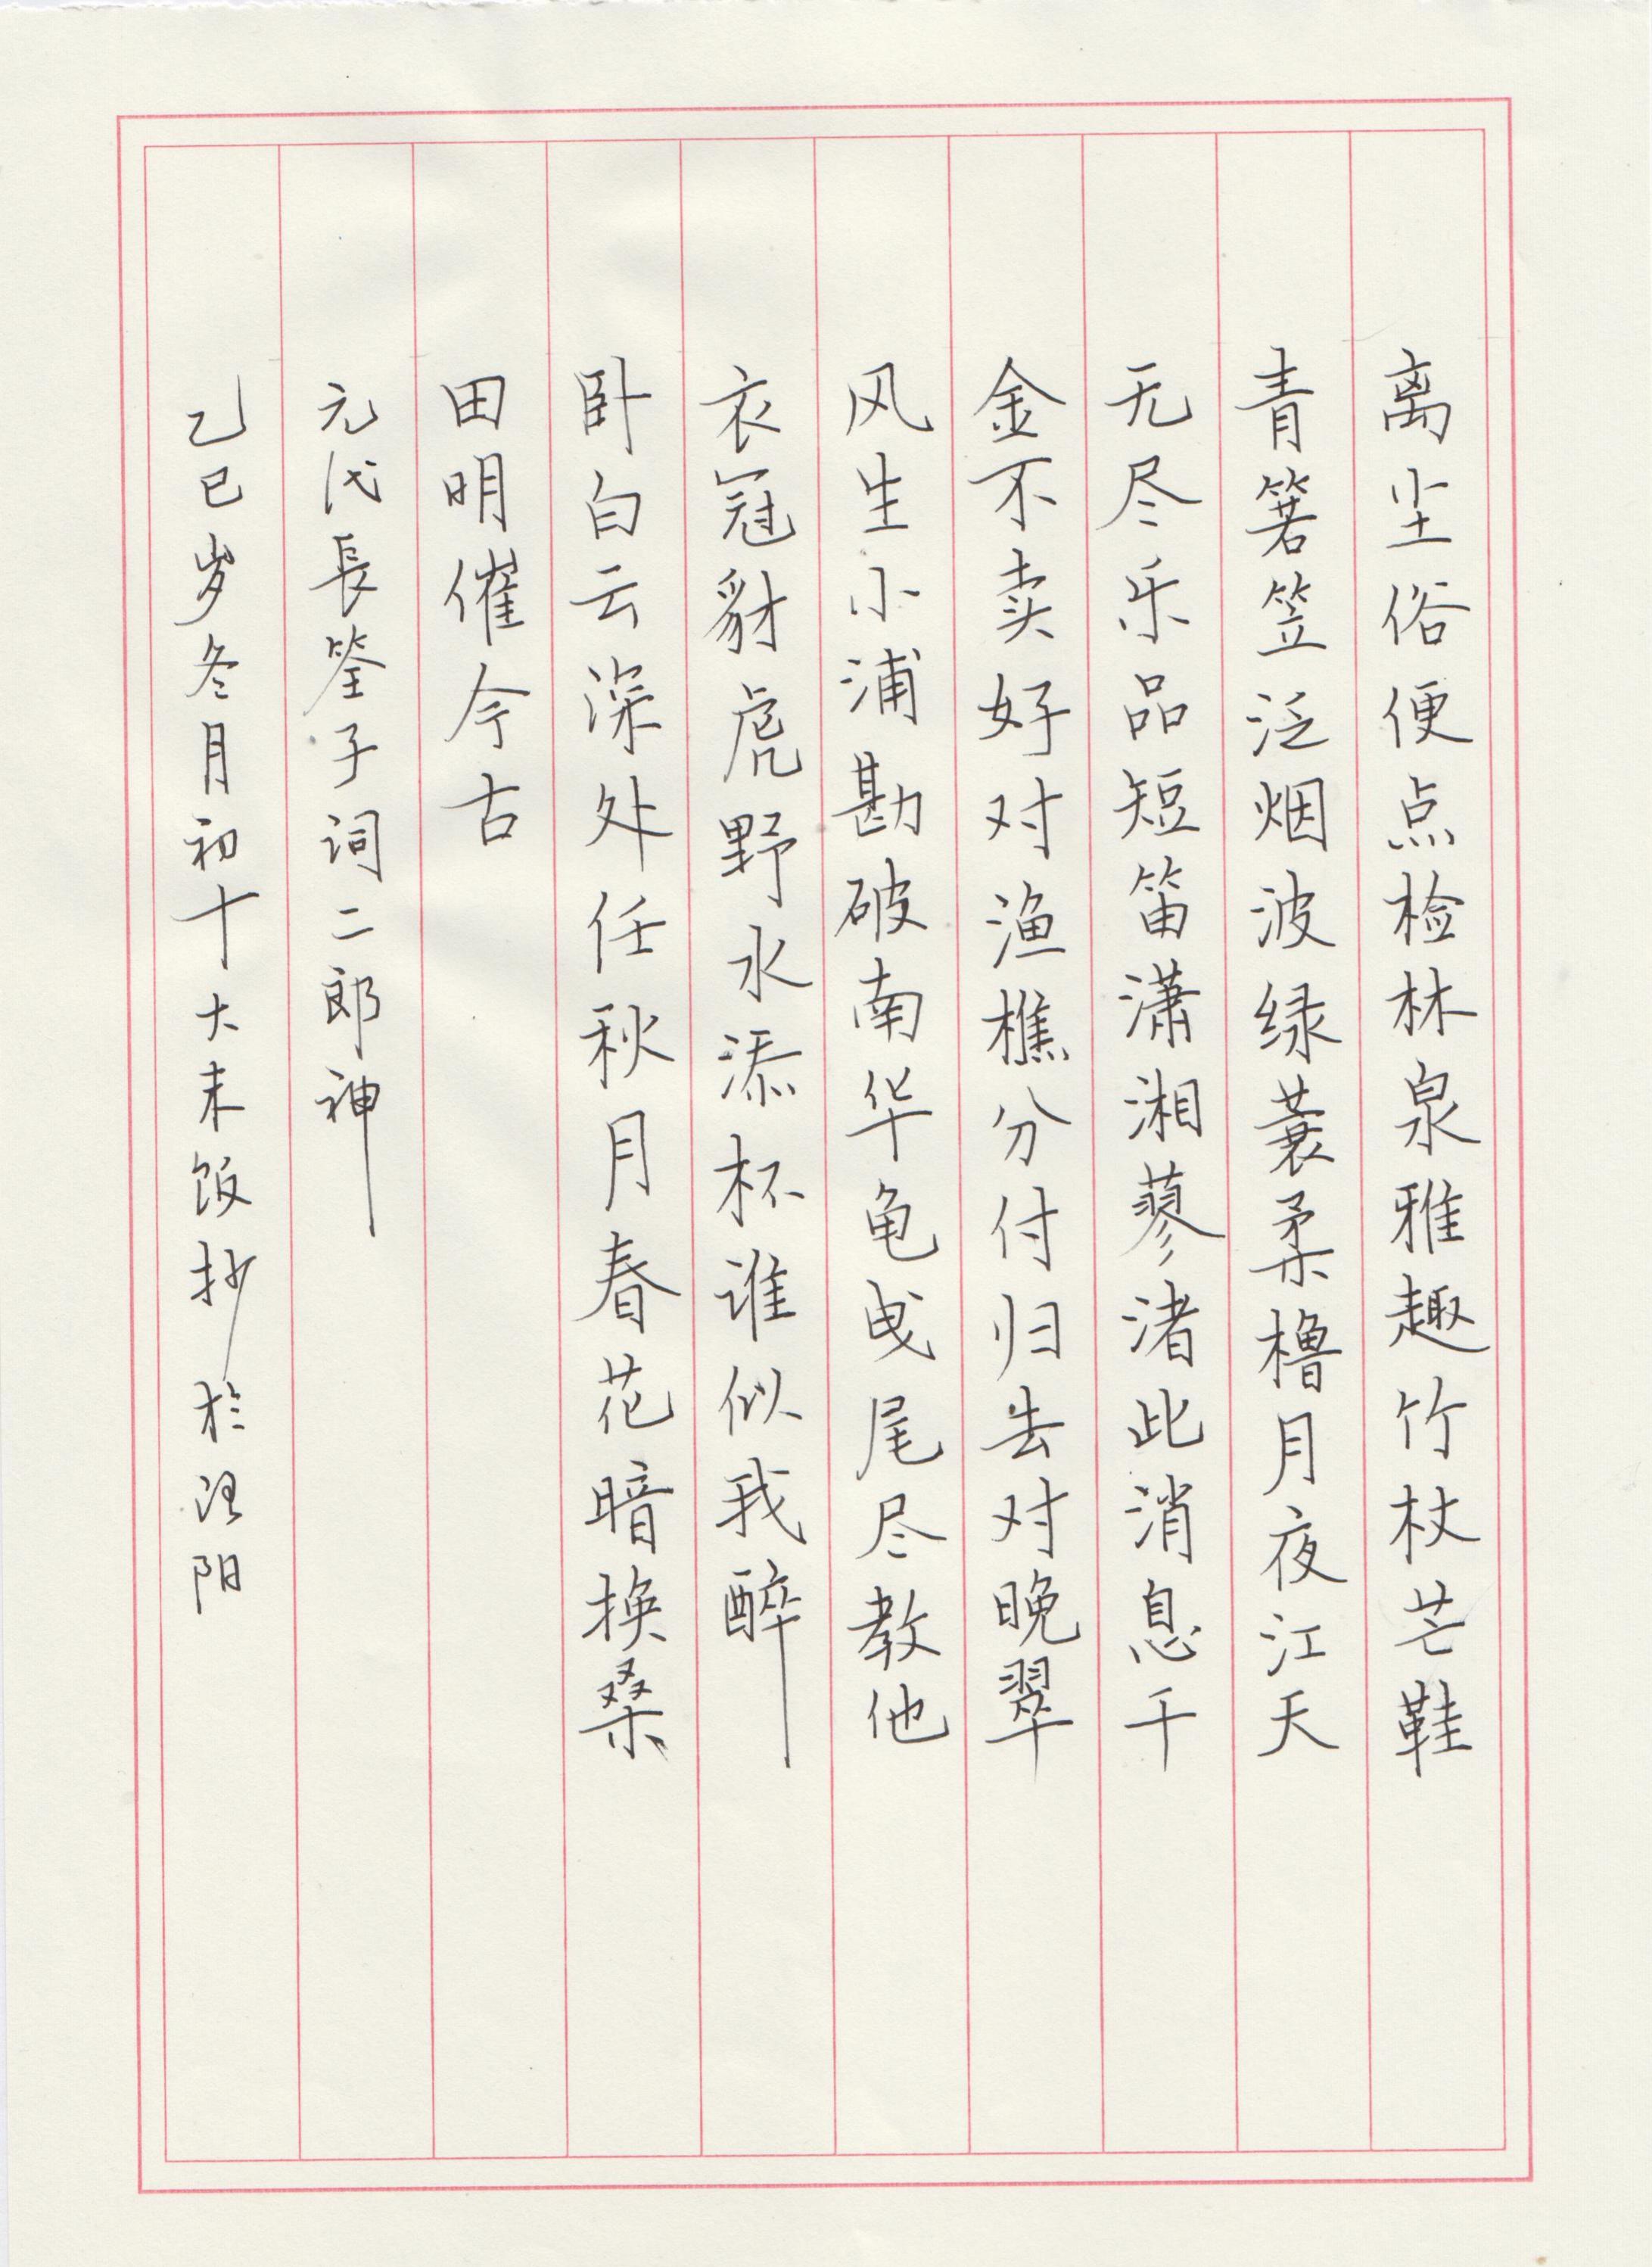 离尘俗便点检林泉雅趣竹杖芒鞋
青箬笠泛烟波绿蓑柔橹月夜江天
无尽乐品短笛潇湘蓼渚此消息千
金不卖好对渔樵分付归去对晚翠
风生小浦勘破南华龟曳尾尽教他
衣冠豺虎野水添杯谁似我醉
卧白云深处任秋月春花暗换桑
田明催今古
元代長筌子词二郎神
乙巳岁冬月初十大未饭抄於泾阳